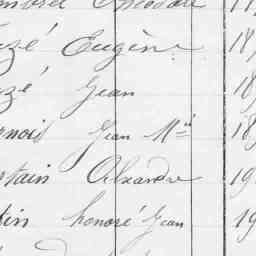 Théodore
zé Eugène 18
zé Jean 18
nois Jean Mie 18
tain Alexandre 19
in honoré Jean 19